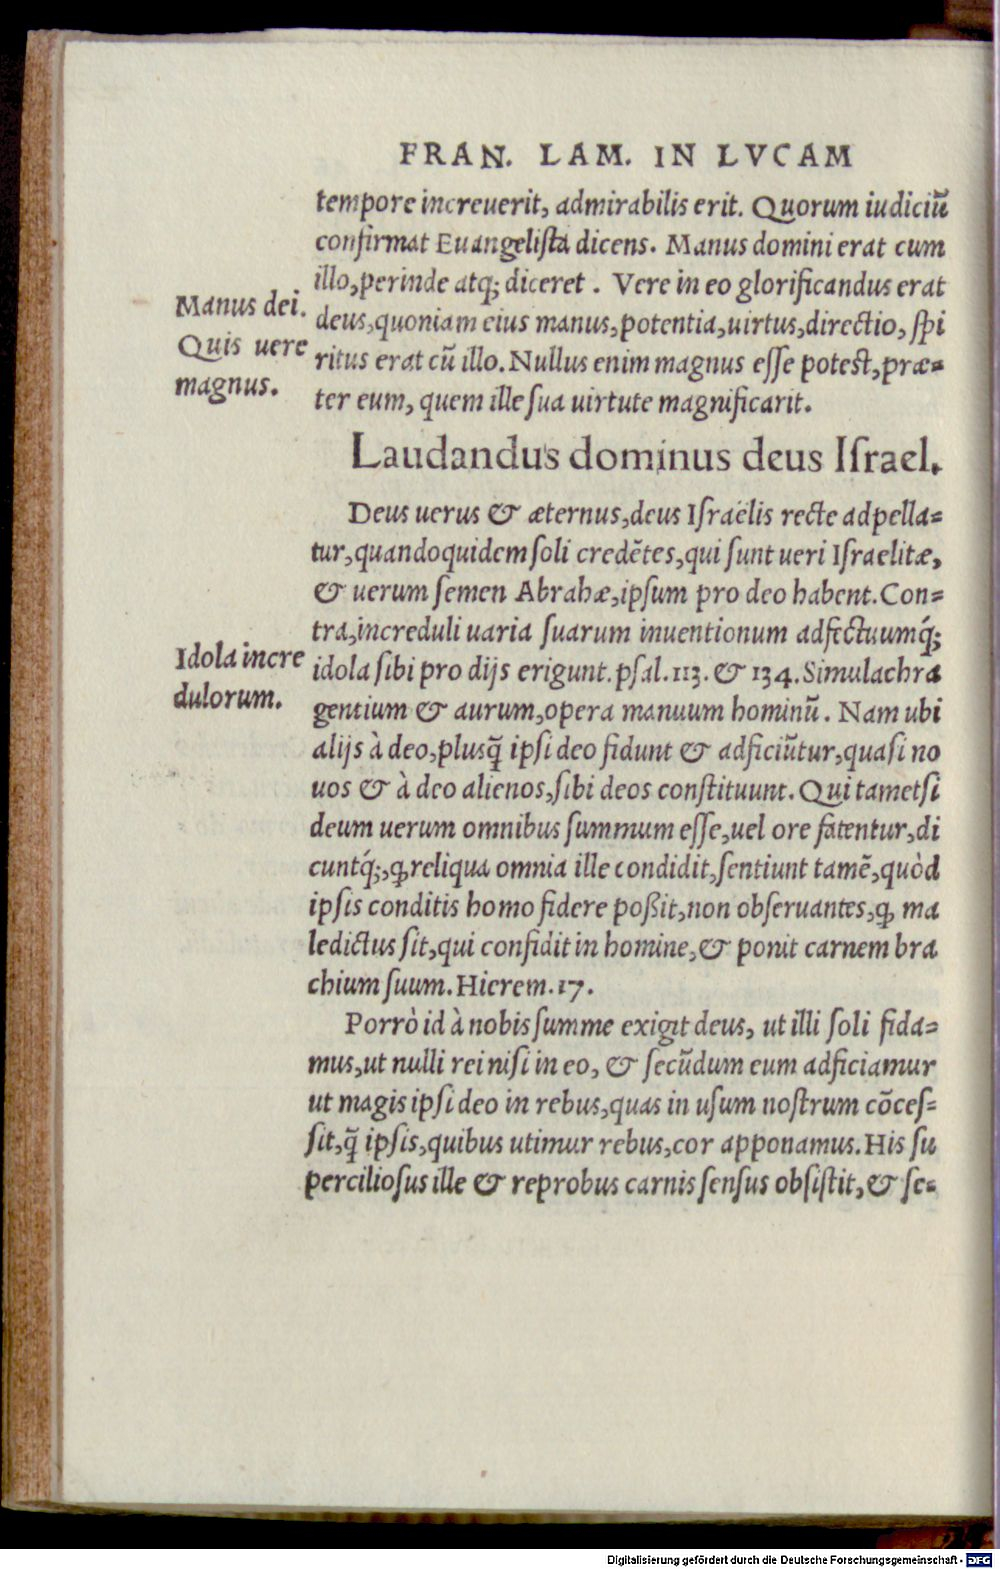 FRAN. LAM. IN LVCAM
tempore increuerit, admirabilis erit. Quorum iudiciũ
confirmat Euangelista dicens. Manus domini erat cum
illo, perinde atq; diceret. Vere in eo glorificandus erat
Manus dei.
deus, quoniam eius manus, potentia, uirtus, directio, spi
Quis uere
ritus erat cũ illo. Nullus enim magnus esse potest, præ=
magnus.
ter eum, quem ille sua uirtute magnificarit.
Laudandus dominus deus Israel.
Deus uerus & æternus, deus Israëlis recte adpella=
tur, quandoquidem soli credẽtes, qui sunt ueri Israelitæ,
& uerum semen Abrahæ, ipsum pro deo habent. Con=
tra, increduli uaria suarum inuentionum adfectuumq́;
Idola incre
idola sibi pro dijs erigunt. psal. 113. & 134. Simulachra
dulorum.
gentium & aurum, opera manuum hominũ. Nam ubi
alijs à deo, plusq̃ ipsi deo fidunt & adficiũtur, quasi no
uos & à deo alienos, sibi deos constituunt. Qui tametsi
deum uerum omnibus summum esse, uel ore fatentur, di
cuntq́;, ꝙ reliqua omnia ille condidit, sentiunt tamẽ, quòd
ipsis conditis homo fidere poßit, non obseruantes, ꝙ ma
ledictus sit, qui confidit in homine, & ponit carnem bra
chium suum. Hierem. 17.
Porrò id à nobis summe exigit deus, ut illi soli fida=
mus, ut nulli rei nisi in eo, & secũdum eum adficiamur
ut magis ipsi deo in rebus, quas in usum nostrum cõces=
sit, q̃ ipsis, quibus utimur rebus, cor apponamus. His su
perciliosus ille & reprobus carnis sensus obsistit, & se=
Digitalisierung gefördert durch die Deutsche Forschungsgemeinschaft - DFG